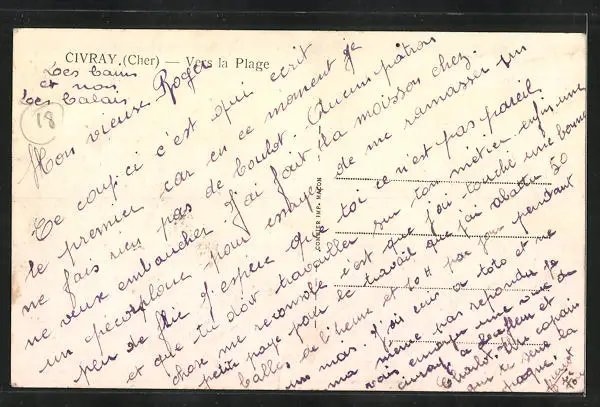 CIVRAY (Cher) — Vers la Plage
Les bains
et non
Les Calais
18
Mon vieux Roger
Ce coup ci c'est qui écrit
le premier car en ce moment je
ne fais rien pas de boulot. Aucun patron
ne veux embaucher j'ai fait la moisson chez
un pour essayer de me ramasser un
peu de fric j'espère que toi ce n'est pas pareil
et que tu doit travailler sur ton métier enfin une
chose me reconsole c'est que j'ai touché une bonne
petite paye pour le travail que j'ai abattu 50
balles de l'heure et 10H par jour pendant
un mois. J'ai écrit a toto et ne
ma même pas répondu je
vais envoyer une vue de
civray a et
Charlot. Une copain
qui te serre la
CORTIER IMP. MACON